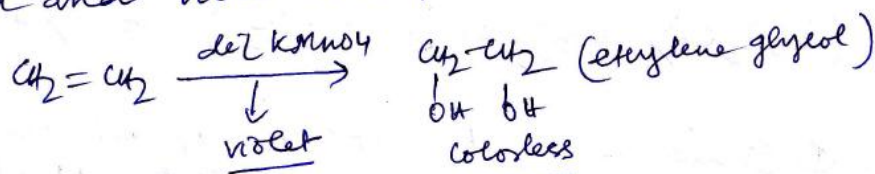 CH2=CH2 dil KMnO4 → CH2-CH2 (ethylene glycol)
OH OH
violet colorless